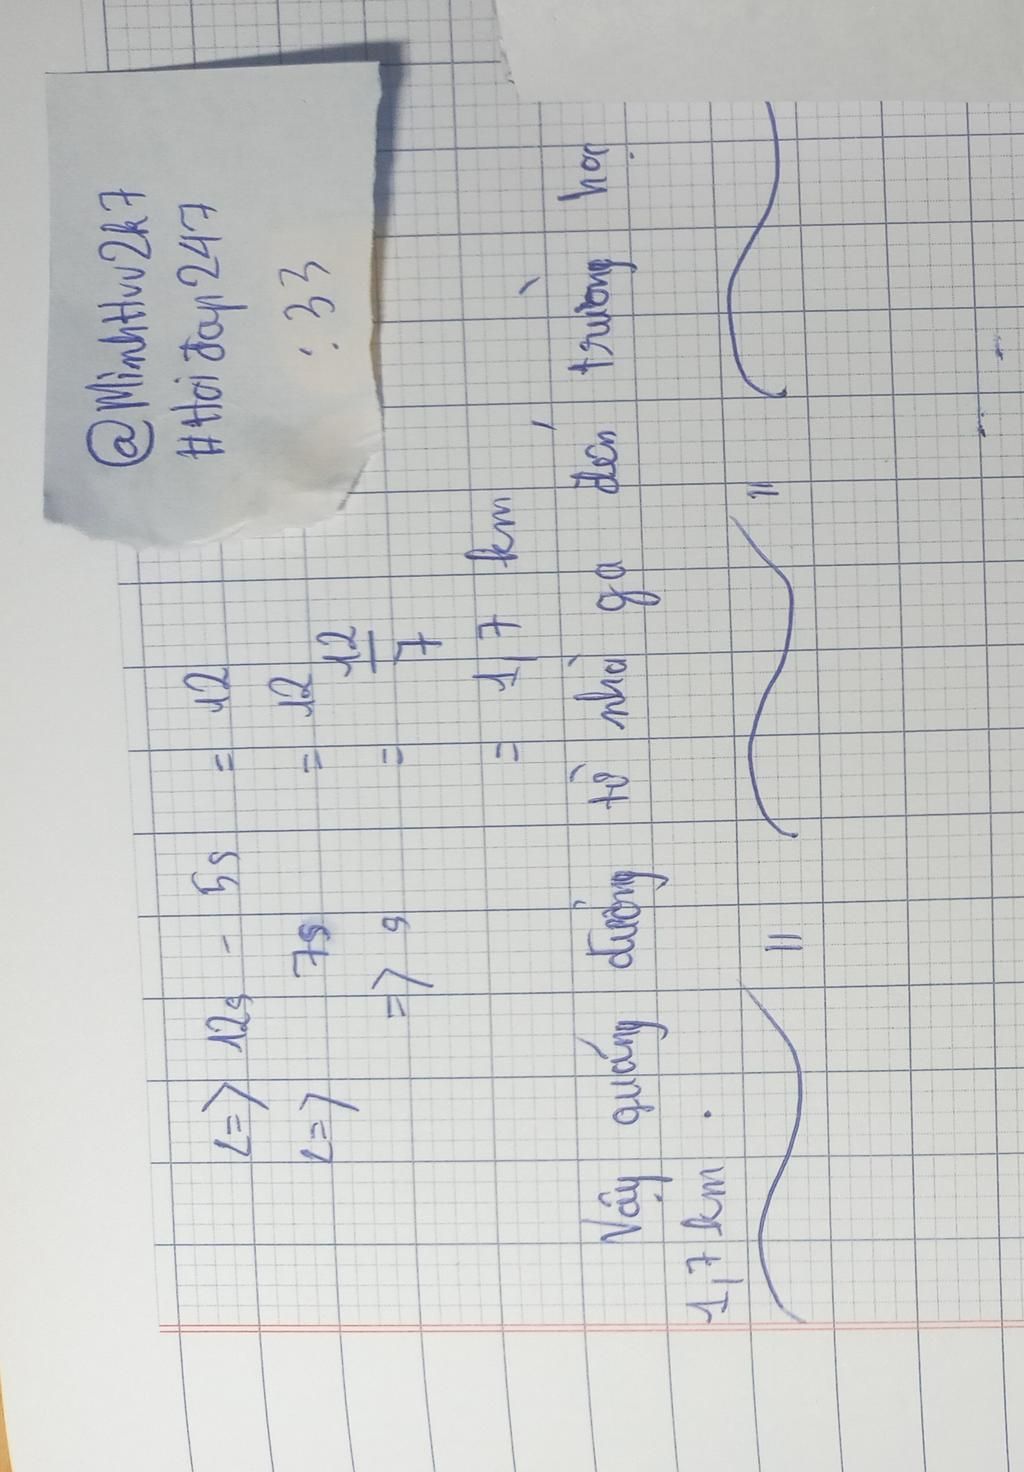 @MinhHvv2k7
#Hoidap247
:33
<=> 12s - 5s = 12
<=> 7s = 12
=> s = 12/7
= 1,7 km
Vậy quãng đường từ nhà ga đến trường họ
1,7 km.